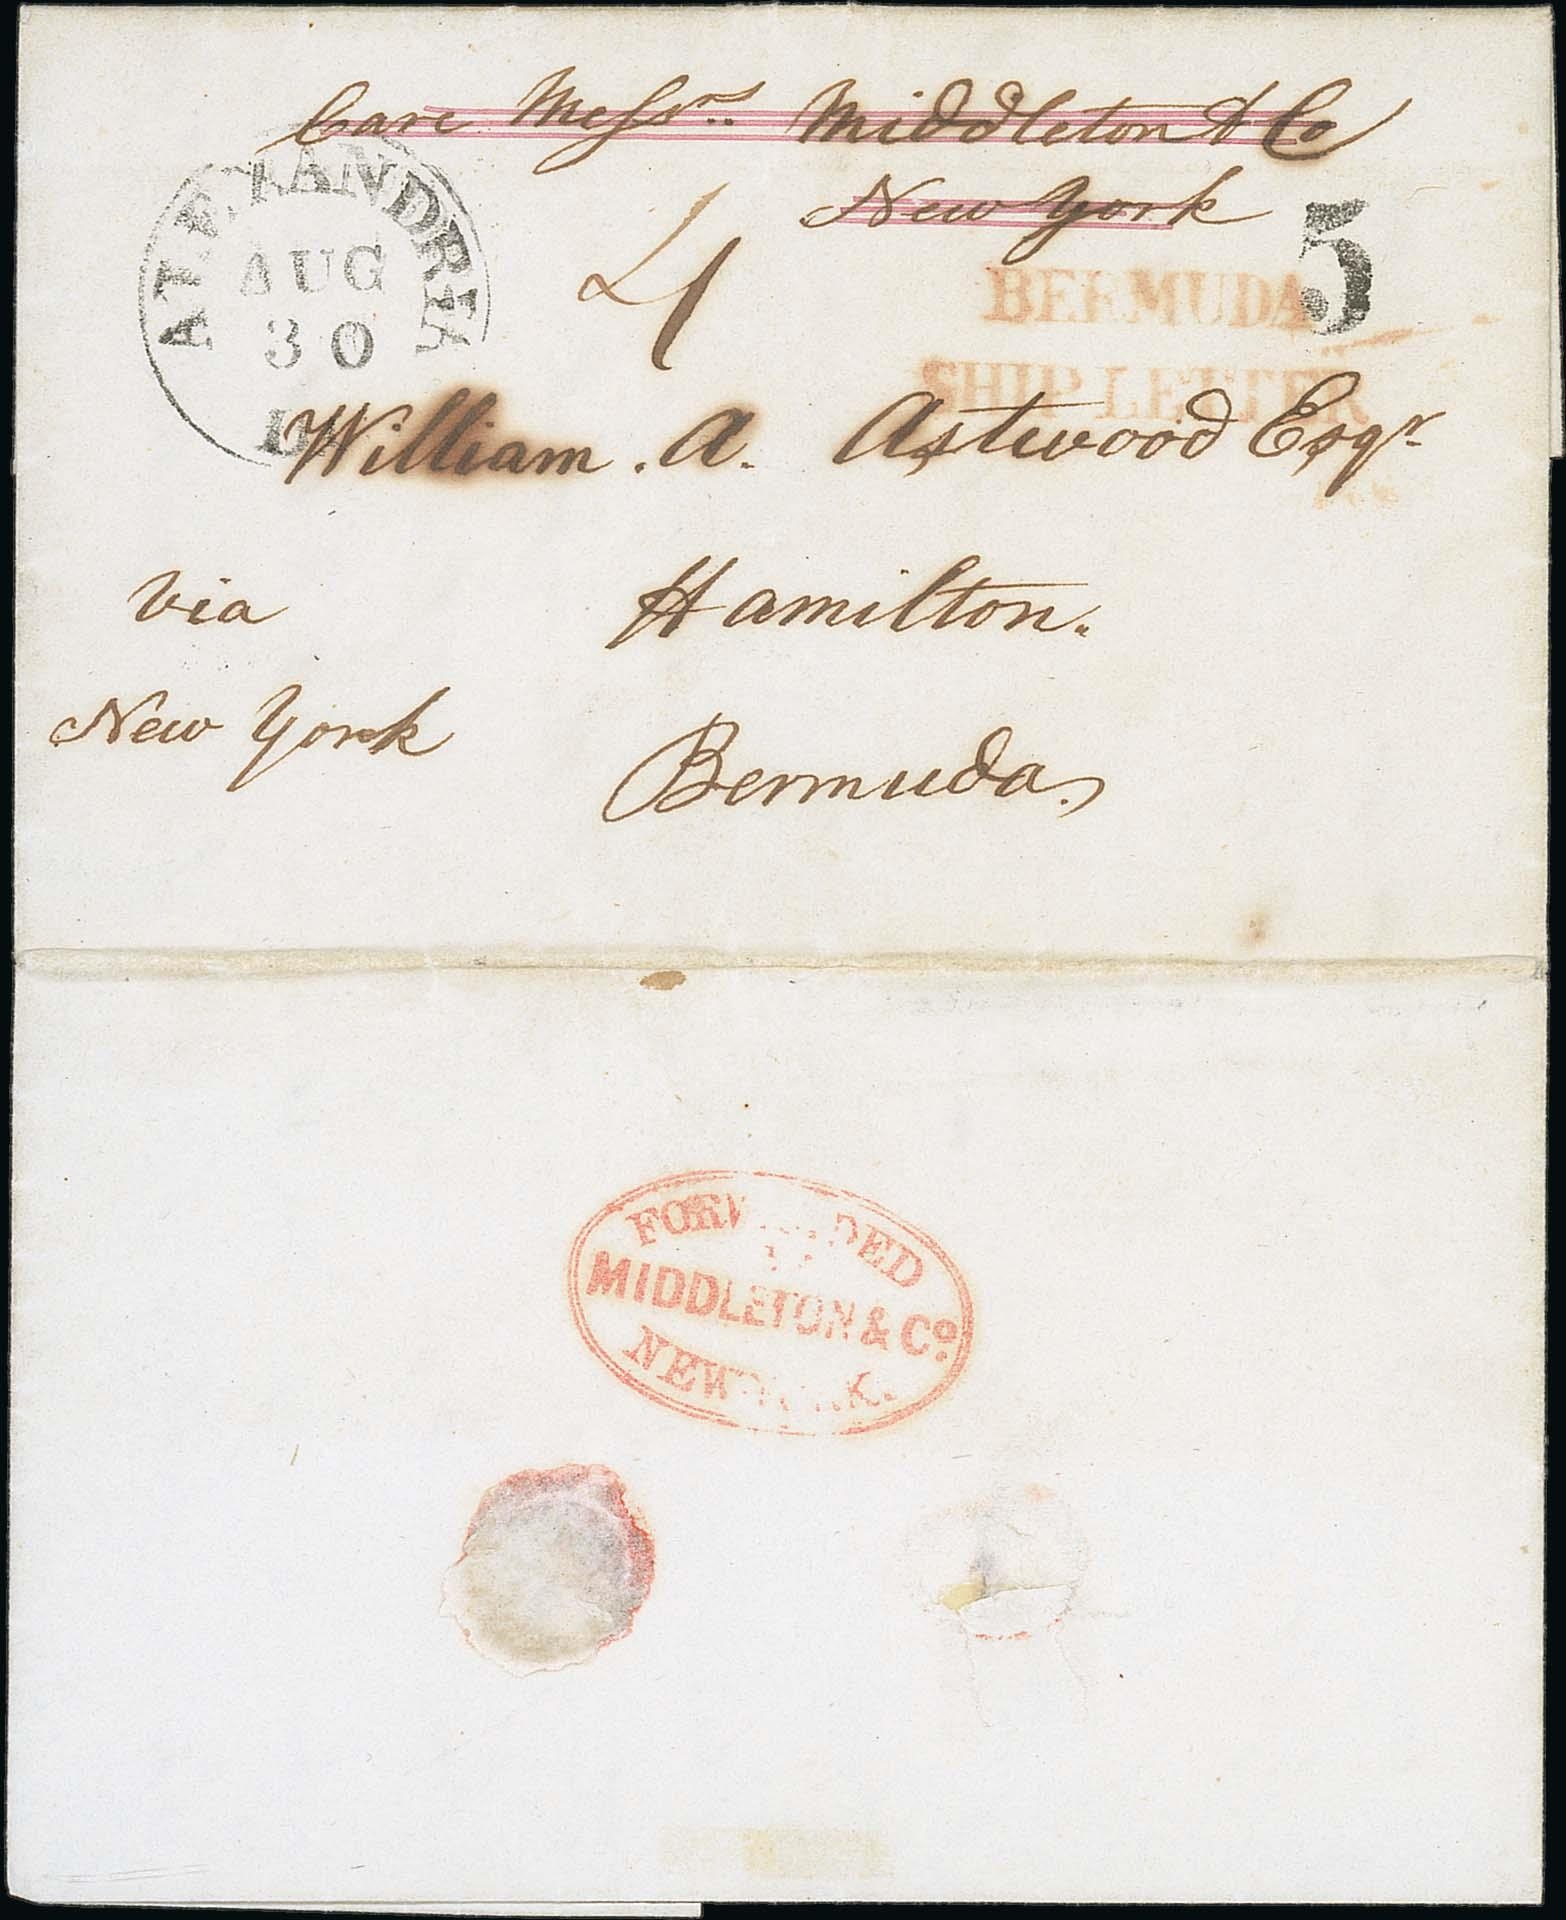 Care Messrs. Middleton & Co
New York
ALEXANDRIA
AUG
30
4
5
BERMUDA
SHIP LETTER
William . A. Astwood Esqr.
via
New York
Hamilton.
Bermuda.
FORWARDED
MIDDLETON & Co.
NEW YORK.